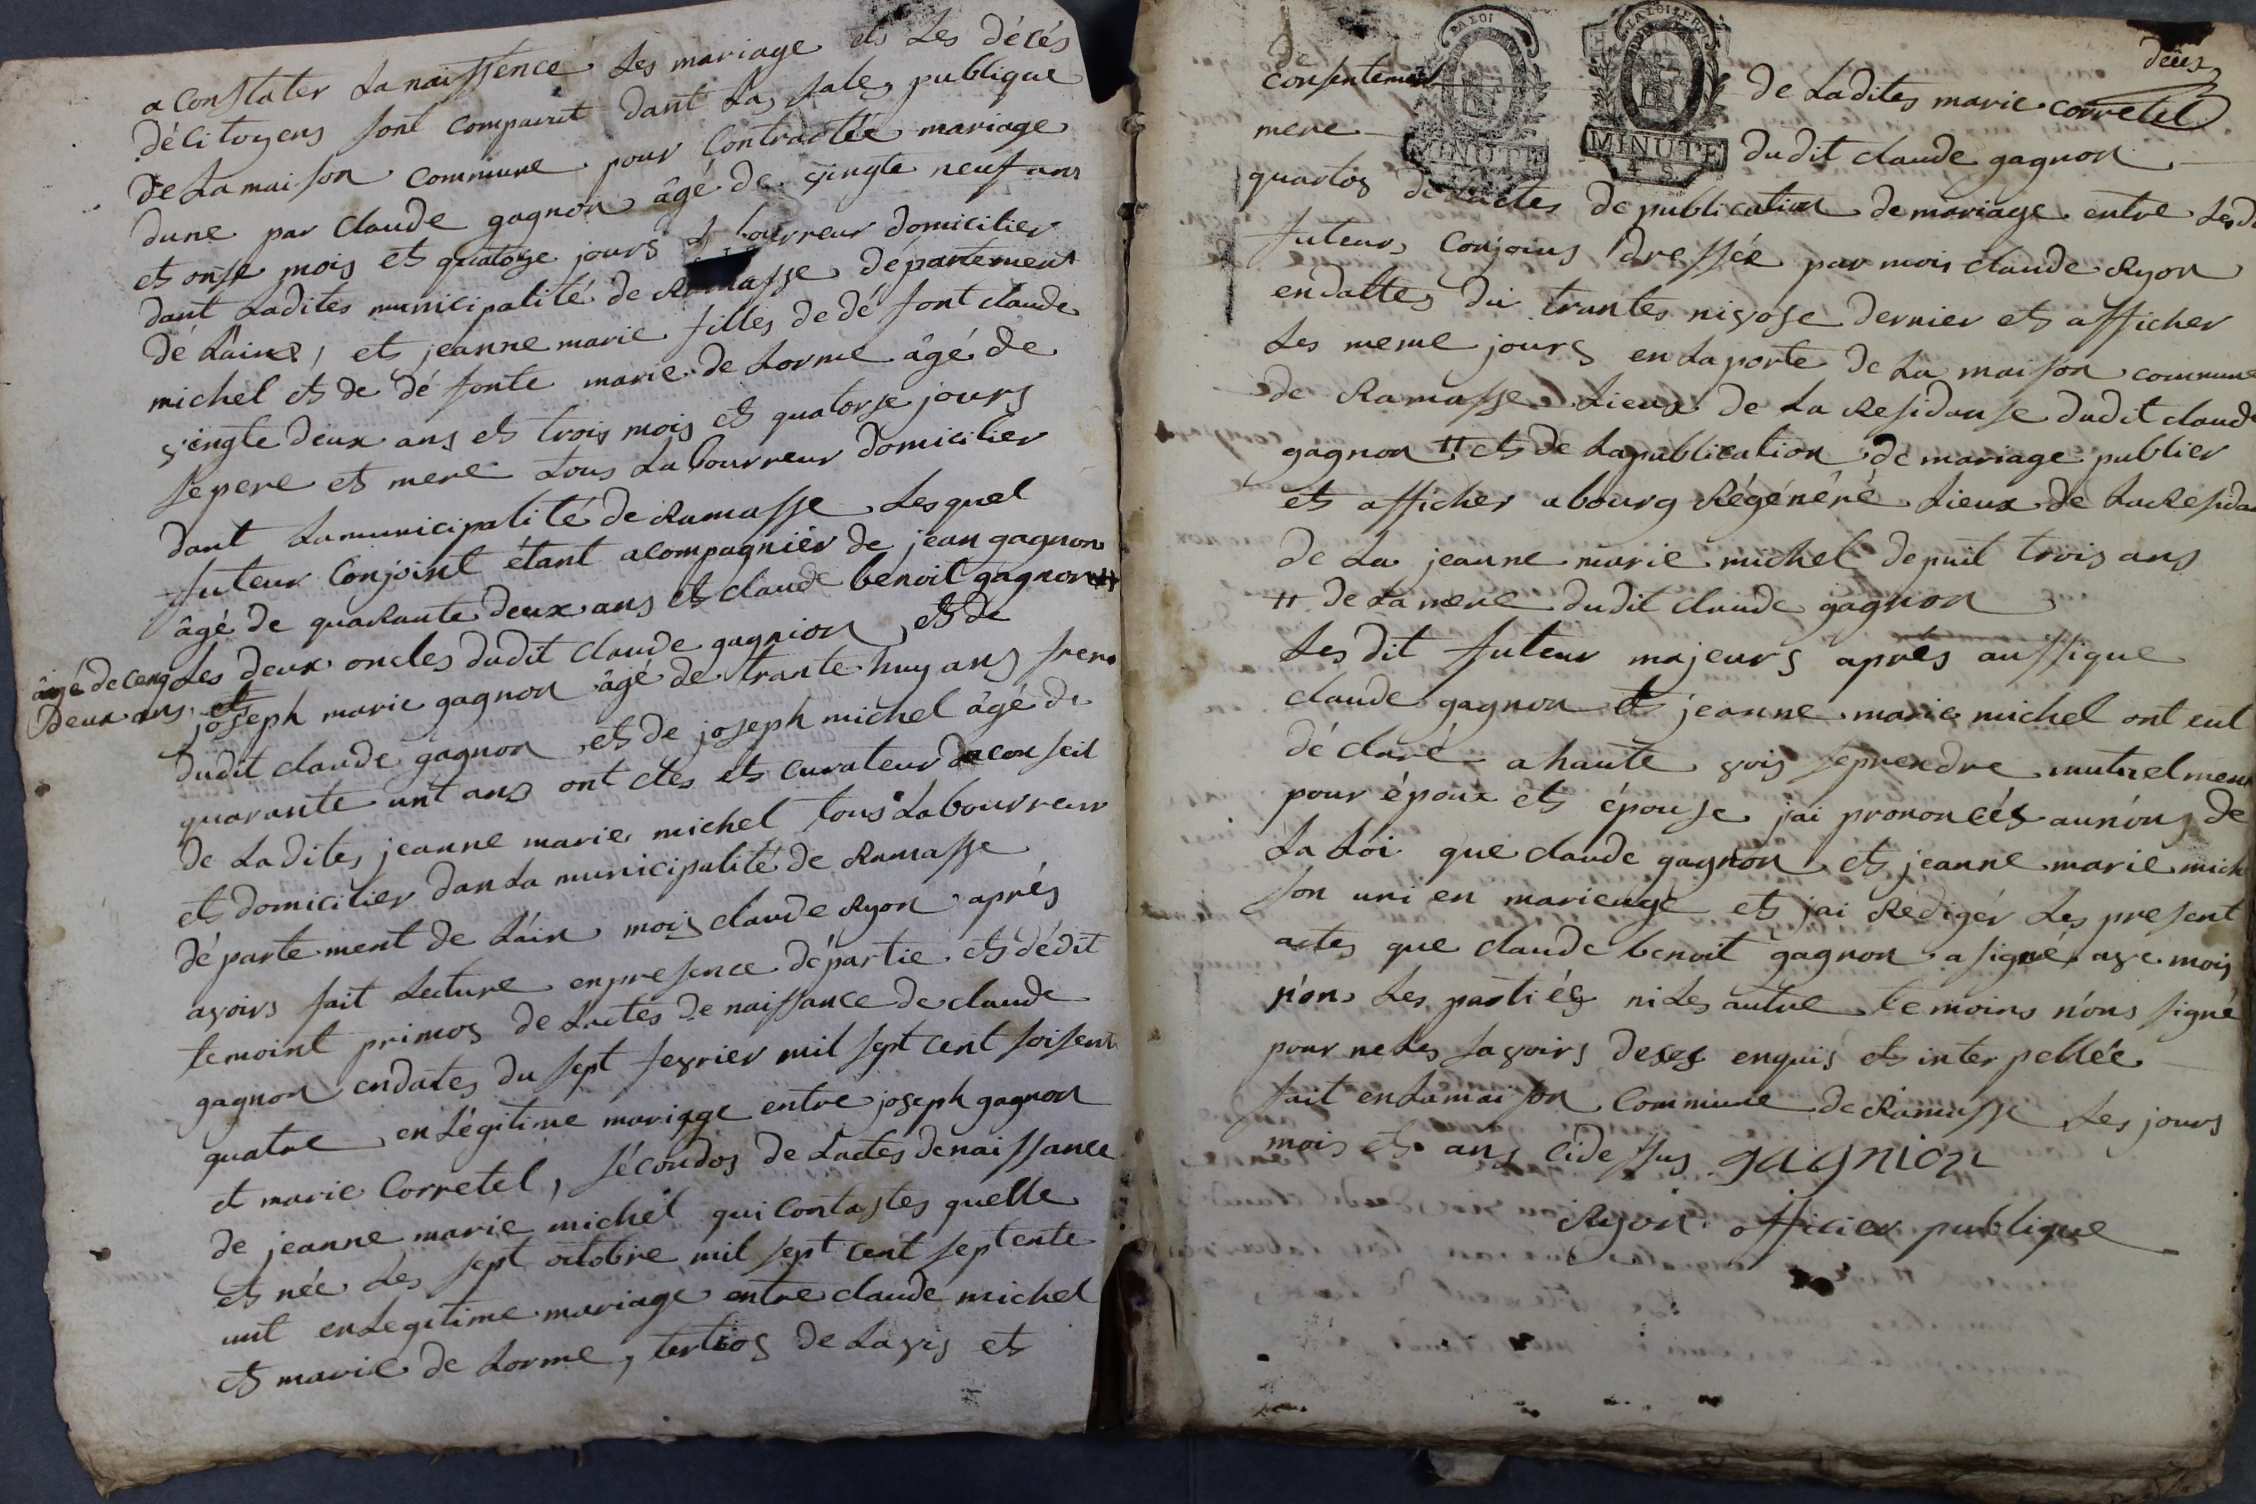 a Constater La naissence Les mariage et Les décés
déCitoyens sont comparut dant La sale publique
de La maison commune pour Contractée mariage
dune par Claude gagnon âgé de vingte neuf ans
et onse mois et quatorze jours Labourreur domicilier
dant Ladites municipalité de Ramasse département
dé Lain, et jeanne marie filles de dé font claude
michel et de dé fonte marie de Lorme âgé de
vingte deux ans et trois mois et quatorse jours
se pere et mere tous Labourreur domicilier
dant La municipalité de Ramasse Lesquel
futeur Conjoint étant acompagniér de jean gagnon
âgé de quaRante deux ans et claude benoit gagnon #
âgé de cenq
deux ans et
Les deux oncles dudit claude gagnion et de
joseph marie gagnon âgé de trante huy ans frere
dudit claude gagnon et de joseph michel âgé de
quarante unt ans ont cles et curateur de conseil
de Ladites jeanne marie michel tous Labourreur
et domicilier dan La municipalité de Ramasse
département de Láin mois claude Ryon aprés
avoirs fait Lecture en presence départie et dédit
temoint primos de Lactes de naissance de claude
gagnon en dates du sept fevrier mil sept cent soisente
quatre en Légitime mariage entre joseph gagnon
et marie Corretel, sécondos de Lactes de naissance
de jeanne marie michel qui Contastes quelle
et née Les sept octobre mil sept cent septente
unt en Legitime mariage entre claude michel
et marie de Lorme, tertios de Lavis et
consentement de Ladites marie corretel
mere dudit claude gagnon
quartos de Lactes de publication de mariage entre Les d
futeur Conjoins dressée par mois claude Ryon
en dattes du trantes nivose dernier et afficher
Les meme jours en La porte de La maison commune
de Ramasse Lieux de La Residanse dudit claude
gagnon # et de La publication de mariage publier
et afficher a bourg Régénéré Lieux de La Residan
de La jeanne marie michel depuit trois ans
# de La mere dudit claude gagnon
Les dit futeur majeurs aprés aussique
claude gagnon et jeanne marie michel ont eut
déclaré a haute vois se prendre mutuelment
pour époux et épouse jai prononcés aunóns de
La Loi que claude gagnon et jeanne marie mich
son uni en marieage et jai Redigér Les present
actes que claude benoit gagnon a signé ave mois
n'on Les partiées ni Les autre temoins n'óns signé
pour ne Les savoirs de ses enquis et interpellée
fait en La maison Commune de Ramasse Les jours
mois et ans cidessus gagnion
Ryon officier publique
MINUTE
MINUTE